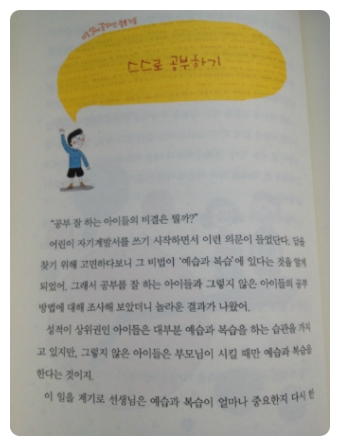 스스로 공부하기
"공부 잘 하는 아이들의 비결은 뭘까?"
어린이 자기계발서를 쓰기 시작하면서 이런 의문이 들었단다. 답을
찾기 위해 고민하다보니 그 비법이 '예습과 복습'에 있다는 것을 알게
되었어. 그래서 공부를 잘 하는 아이들과 그렇지 않은 아이들의 공부
방법에 대해 조사해 보았더니 놀라운 결과가 나왔어.
성적이 상위권인 아이들은 대부분 예습과 복습을 하는 습관을 가지
고 있지만, 그렇지 않은 아이들은 부모님이 시킬 때만 예습과 복습을
한다는 것이지.
이 일을 계기로 선생님은 예습과 복습이 얼마나 중요한지 다시 한